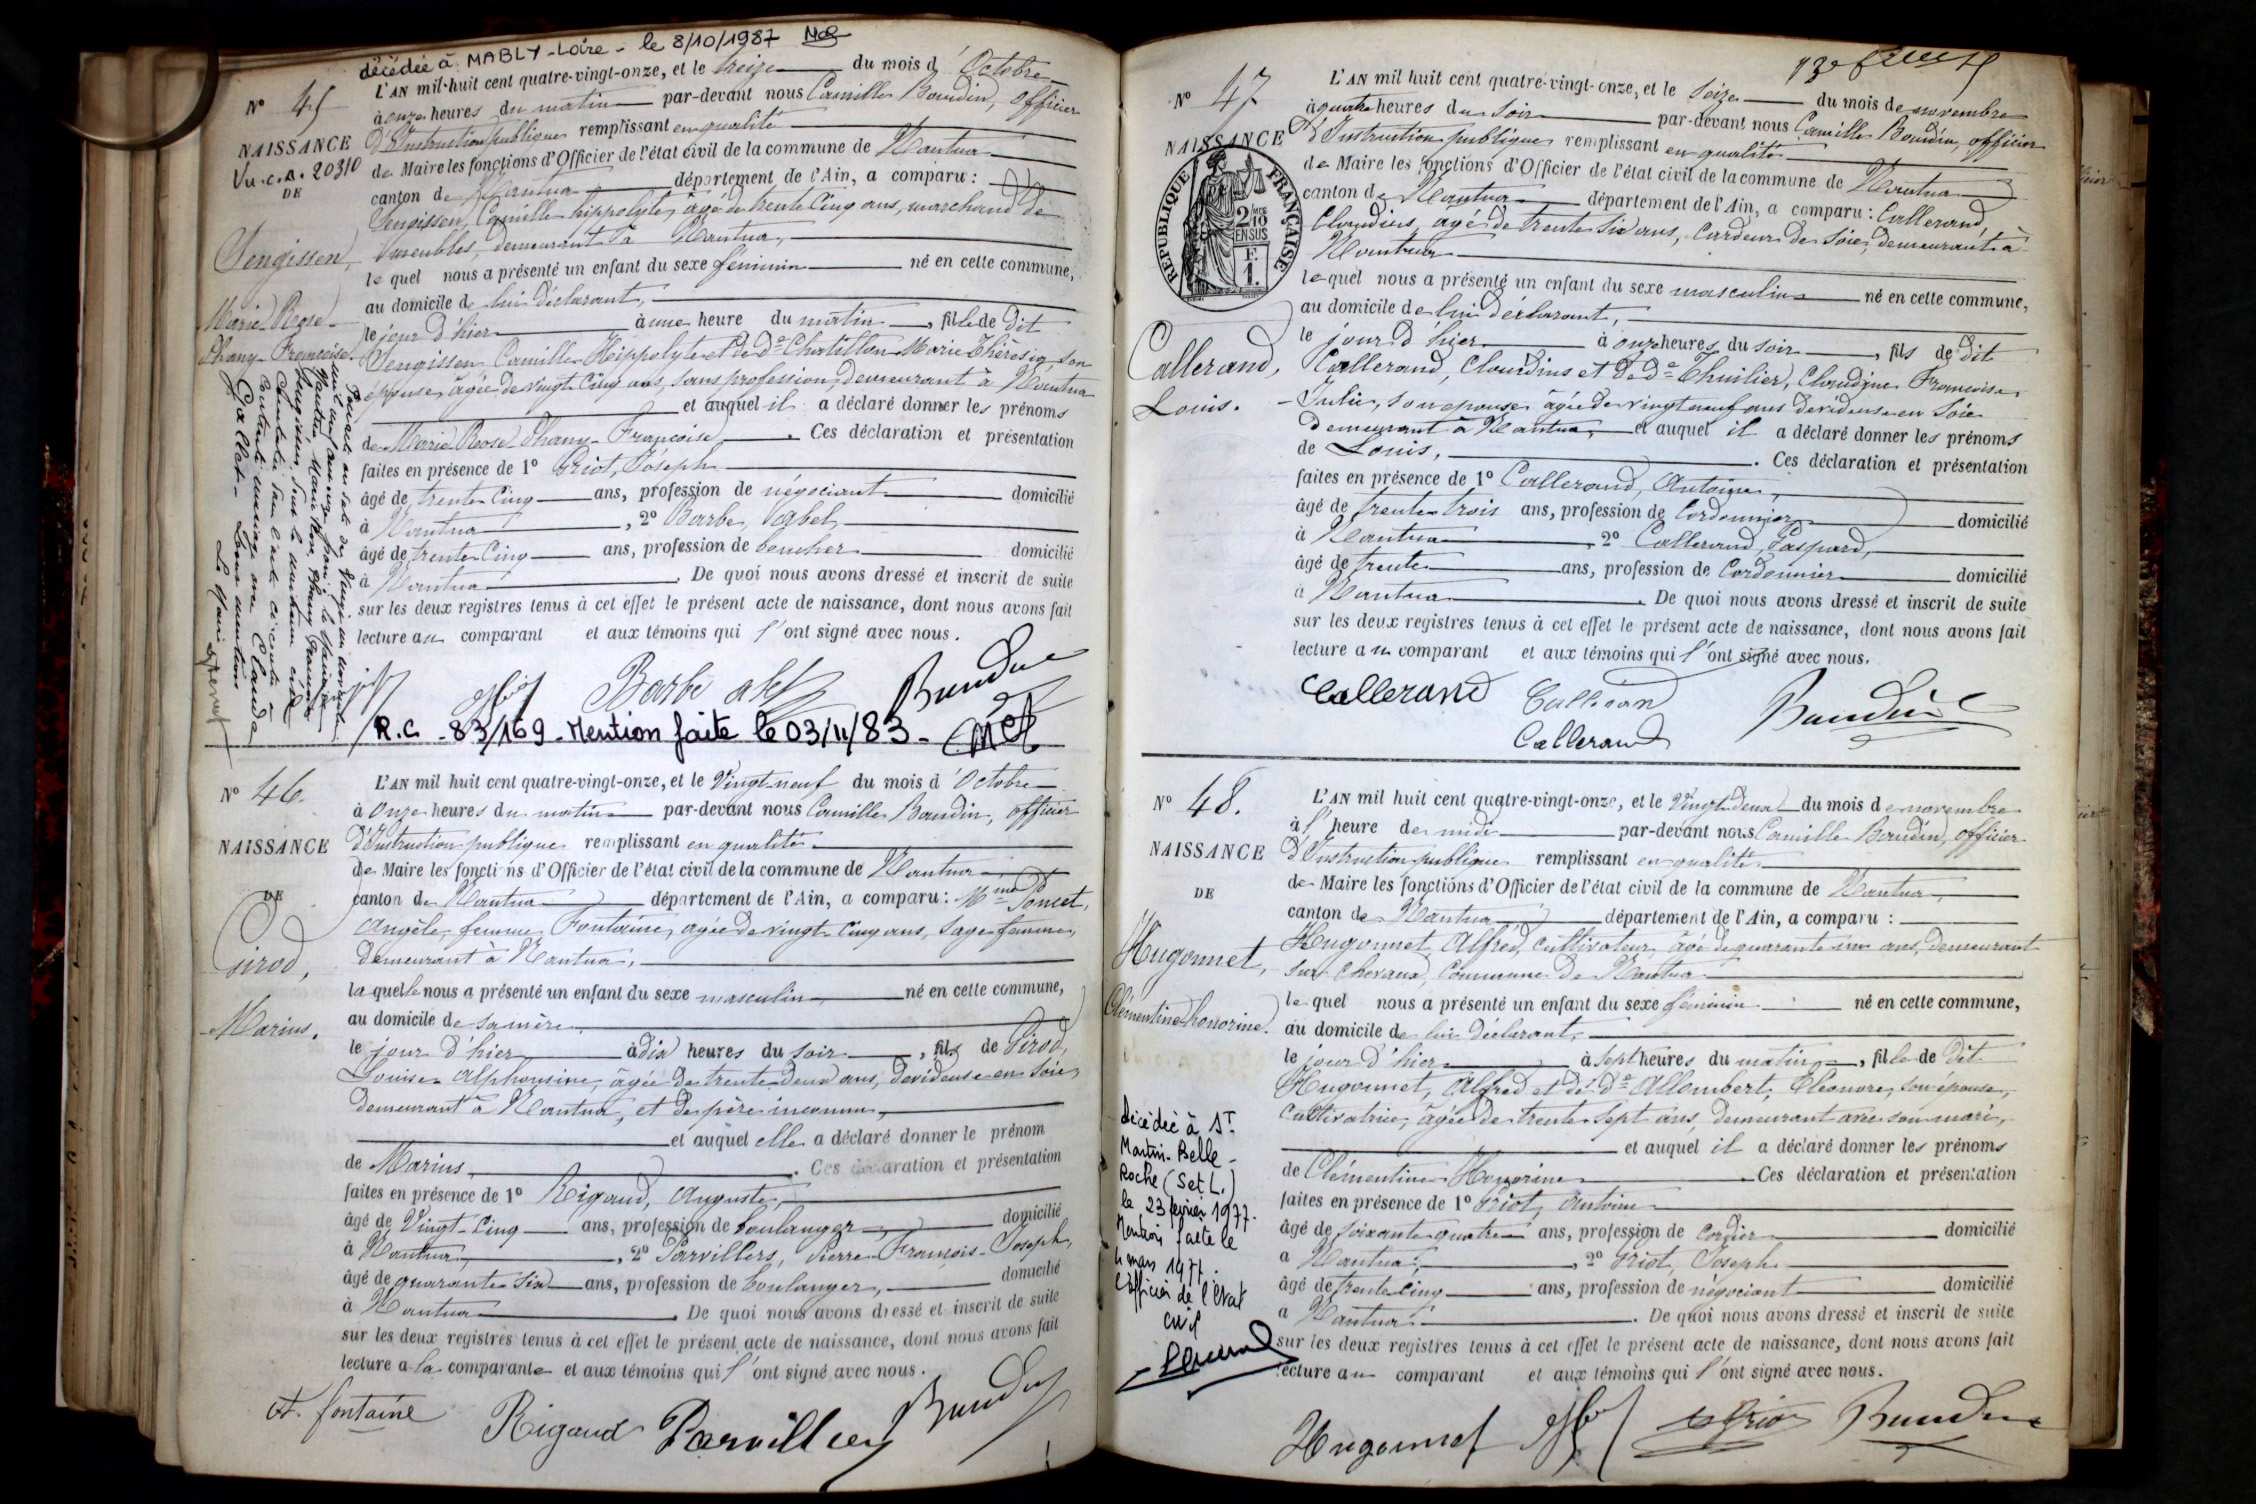 décédée à MABLY-Loire - le 8/10/1987
N° 45
NAISSANCE
Vu. c. a. 20310
DE
Sengissen,
Marie Rose
Phany-Françoise
L'AN mil-huit cent quatre-vingt-onze, et le treize du mois d'Octobre
à onze heures du matin par-devant nous Camille Baudin, officier
d'Instruction publique remplissant en qualité
de Maire les fonctions d'Officier de l'état civil de la commune de Nantua
canton de Nantua département de l'Ain, a comparu:
Sengissen, Camille hippolyte, âgé de trente cinq ans, marchand de
meubles, demeurant à Nantua,
le quel nous a présenté un enfant du sexe féminin né en cette commune,
au domicile de lui déclarant,
le jour d'hier à une heure du matin, fille de dit
Sengissen Camille Hippolyte et de De Chatillon Marie Thérésia, son
épouse, âgée de vingt cinq ans, sans profession, demeurant à Nantua
et auquel il a déclaré donner les prénoms
de Marie Rose Phany-Françoise. Ces déclaration et présentation
faites en présence de 1° Griot, Joseph
âgé de trente cinq ans, profession de négociant domicilié
à Nantua, 2° Barbe, Abel,
âgé de trente cinq ans, profession de boucher domicilié
à Nantua. De quoi nous avons dressé et inscrit de suite
sur les deux registres tenus à cet effet le présent acte de naissance, dont nous avons fait
lecture au comparant et aux témoins qui l'ont signé avec nous.
Barbe abel Baudin
R.C. - 83/169 - Mention faite le 03/11/83 -
N° 46.
NAISSANCE
DE
Pirod,
Marius.
L'AN mil huit cent quatre-vingt-onze, et le Vingt neuf du mois d'Octobre
à onze heures du matin par-devant nous Camille Baudin, officier
d'Instruction publique remplissant en qualité
de Maire les fonctions d'Officier de l'état civil de la commune de Nantua
canton de Nantua département de l'Ain, a comparu: Mme Poncet,
Angèle, femme Fontaine, âgée de vingt cinq ans, sage femme,
demeurant à Nantua,
la quelle nous a présenté un enfant du sexe masculin né en cette commune,
au domicile de sa mère
le jour d'hier à dix heures du soir, fils de Pirod,
Louise Alphonsine, âgée de trente deux ans, dévideuse en soie,
demeurant à Nantua, et de père inconnu,
et auquel elle a déclaré donner le prénom
de Marius. Ces déclaration et présentation
faites en présence de 1° Rigaud, Auguste,
âgé de Vingt-cinq ans, profession de boulanger domicilié
à Nantua, 2° Parvillers, Pierre François-Joseph,
âgé de quarante six ans, profession de boulanger, domicilié
à Nantua. De quoi nous avons dressé et inscrit de suite
sur les deux registres tenus à cet effet le présent acte de naissance, dont nous avons fait
lecture a la comparante et aux témoins qui l'ont signé avec nous.
A. fontaine Rigaud Baudin
N° 47
NAISSANCE
REPUBLIQUE FRANÇAISE
2/10 EN SUS
F. 1.
Callerand,
Louis.
L'AN mil huit cent quatre-vingt-onze, et le Seize du mois de novembre
à quatre heures du soir par-devant nous Camille Baudin, officier
d'Instruction publique remplissant en qualité
de Maire les fonctions d'Officier de l'état civil de la commune de Nantua
canton de Nantua département de l'Ain, a comparu: Callerand,
Claudius, âgé de trente six ans, cardeur de soie, demeurant à
Nantua
le quel nous a présenté un enfant du sexe masculin né en cette commune,
au domicile de lui déclarant,
le jour d'hier à onze heures du soir, fils de dit
Callerand, Claudius et de De Thuilier, Claudine Françoise
Julie, son épouse, âgée de vingt neuf ans dévideuse en soie
demeurant à Nantua, et auquel il a déclaré donner les prénoms
de Louis,. Ces déclaration et présentation
faites en présence de 1° Callerand, Antoine,
âgé de trente trois ans, profession de Cordonnier domicilié
à Nantua 2° Callerand, Gaspard,
âgé de trente ans, profession de Cordonnier domicilié
à Nantua. De quoi nous avons dressé et inscrit de suite
sur les deux registres tenus à cet effet le présent acte de naissance, dont nous avons fait
lecture au comparant et aux témoins qui l'ont signé avec nous.
Callerand
Callerand Baudin
N° 48.
NAISSANCE
DE
Hugonnet,
Clémentine honorine.
décédée à St
Martin-Belle-
Roche (S et L.)
le 23 février 1977.
Mention faite le
4 mars 1977.
l'officier de l'état
civil
L'AN mil huit cent quatre-vingt-onze, et le Vingt deux du mois de novembre
à l'heure de midi par-devant nous Camille Baudin, officier
d'Instruction publique remplissant en qualité
de Maire les fonctions d'Officier de l'état civil de la commune de Nantua,
canton de Nantua département de l'Ain, a comparu :
Hugonnet, Alfred, cultivateur, âgé de quarante un ans, demeurant
sur Chevaux, Commune de Nantua
le quel nous a présenté un enfant du sexe féminin né en cette commune,
au domicile de lui déclarant,
le jour d'hier à sept heures du matin, fille de dit
Hugonnet, Alfred et de De Allombert, Eléonore, son épouse,
cultivatrice, âgée de trente sept ans, demeurant avec son mari,
et auquel il a déclaré donner les prénoms
de Clémentine Honorine Ces déclaration et présentation
faites en présence de 1° Griot, Antoine
âgé de soixante quatre ans, profession de cordier domicilié
a Nantua, 2° Griot, Joseph
âgé de trente cinq ans, profession de négociant domicilié
a Nantua. De quoi nous avons dressé et inscrit de suite
sur les deux registres tenus à cet effet le présent acte de naissance, dont nous avons fait
lecture au comparant et aux témoins qui l'ont signé avec nous.
Hugonnet Griot Baudin